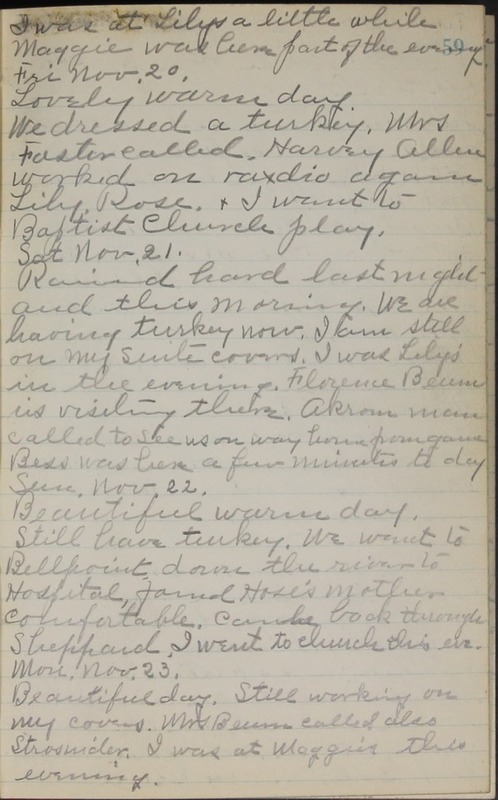 I was at Lilys a little while
Maggie was here part of the evening.
59
Fri Nov. 20.
Lovely warm day
We dressed a turkey. Mrs
Foster called. Harvey Allen
worked on raxdio again
Lily, Rose. & I want to
Baptist Church play.
Sat Nov. 21.
Raind hard last night
and this morning. We are
having turkey now. I am still
on my suite covers. I was Lily's
in the evening. Florence Beum
is visiting there. Akrom man
called to see us on way home from game
Bess was here a few minutes to day
Sun. Nov. 22.
Beautiful warm day.
Still have turkey. We went to
Bellpoint down the river to
Hospital, found Hose's mother
comfortable. Came back through
Sheppard. I went to church this eve.
Mon. Nov. 23.
Beautiful day. Still working on
my covers. Mrs Beum called also
Strosnider. I was at Maggies this
evening.